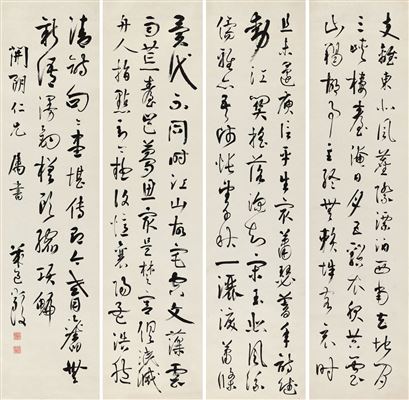 支離東北風塵際漂泊西南天地間
三峽樓臺淹日月五谿衣服共雲
山羯胡事主終無賴詞客哀時
且未還庾信平生最蕭瑟暮年詩賦
動江關搖落深知宋玉悲風流
儒雅亦吾師悵望千秋一灑淚蕭條
異代不同時江山故宅空文藻雲
雨荒臺豈夢思最是楚宮俱泯滅
舟人指點到今疑復憶襄陽孟浩然
清詩句句盡堪傳即今耆舊無
新語漫釣槎頭縮項鯿
仁兄屬書